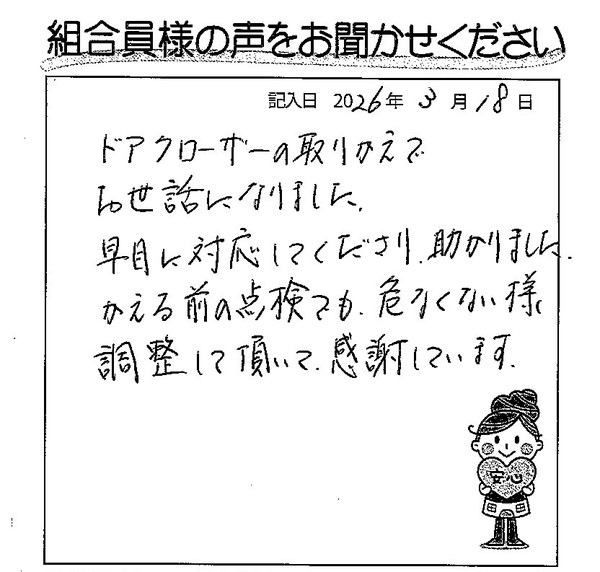 組合員様の声をお聞かせください
記入日 2026年 3月 18日
ドアクローザーの取りかえで
お世話になりました。
早目に対応してくださり、助かりました。
かえる前の点検でも、危なくない様
調整して頂いて、感謝しています。
安心